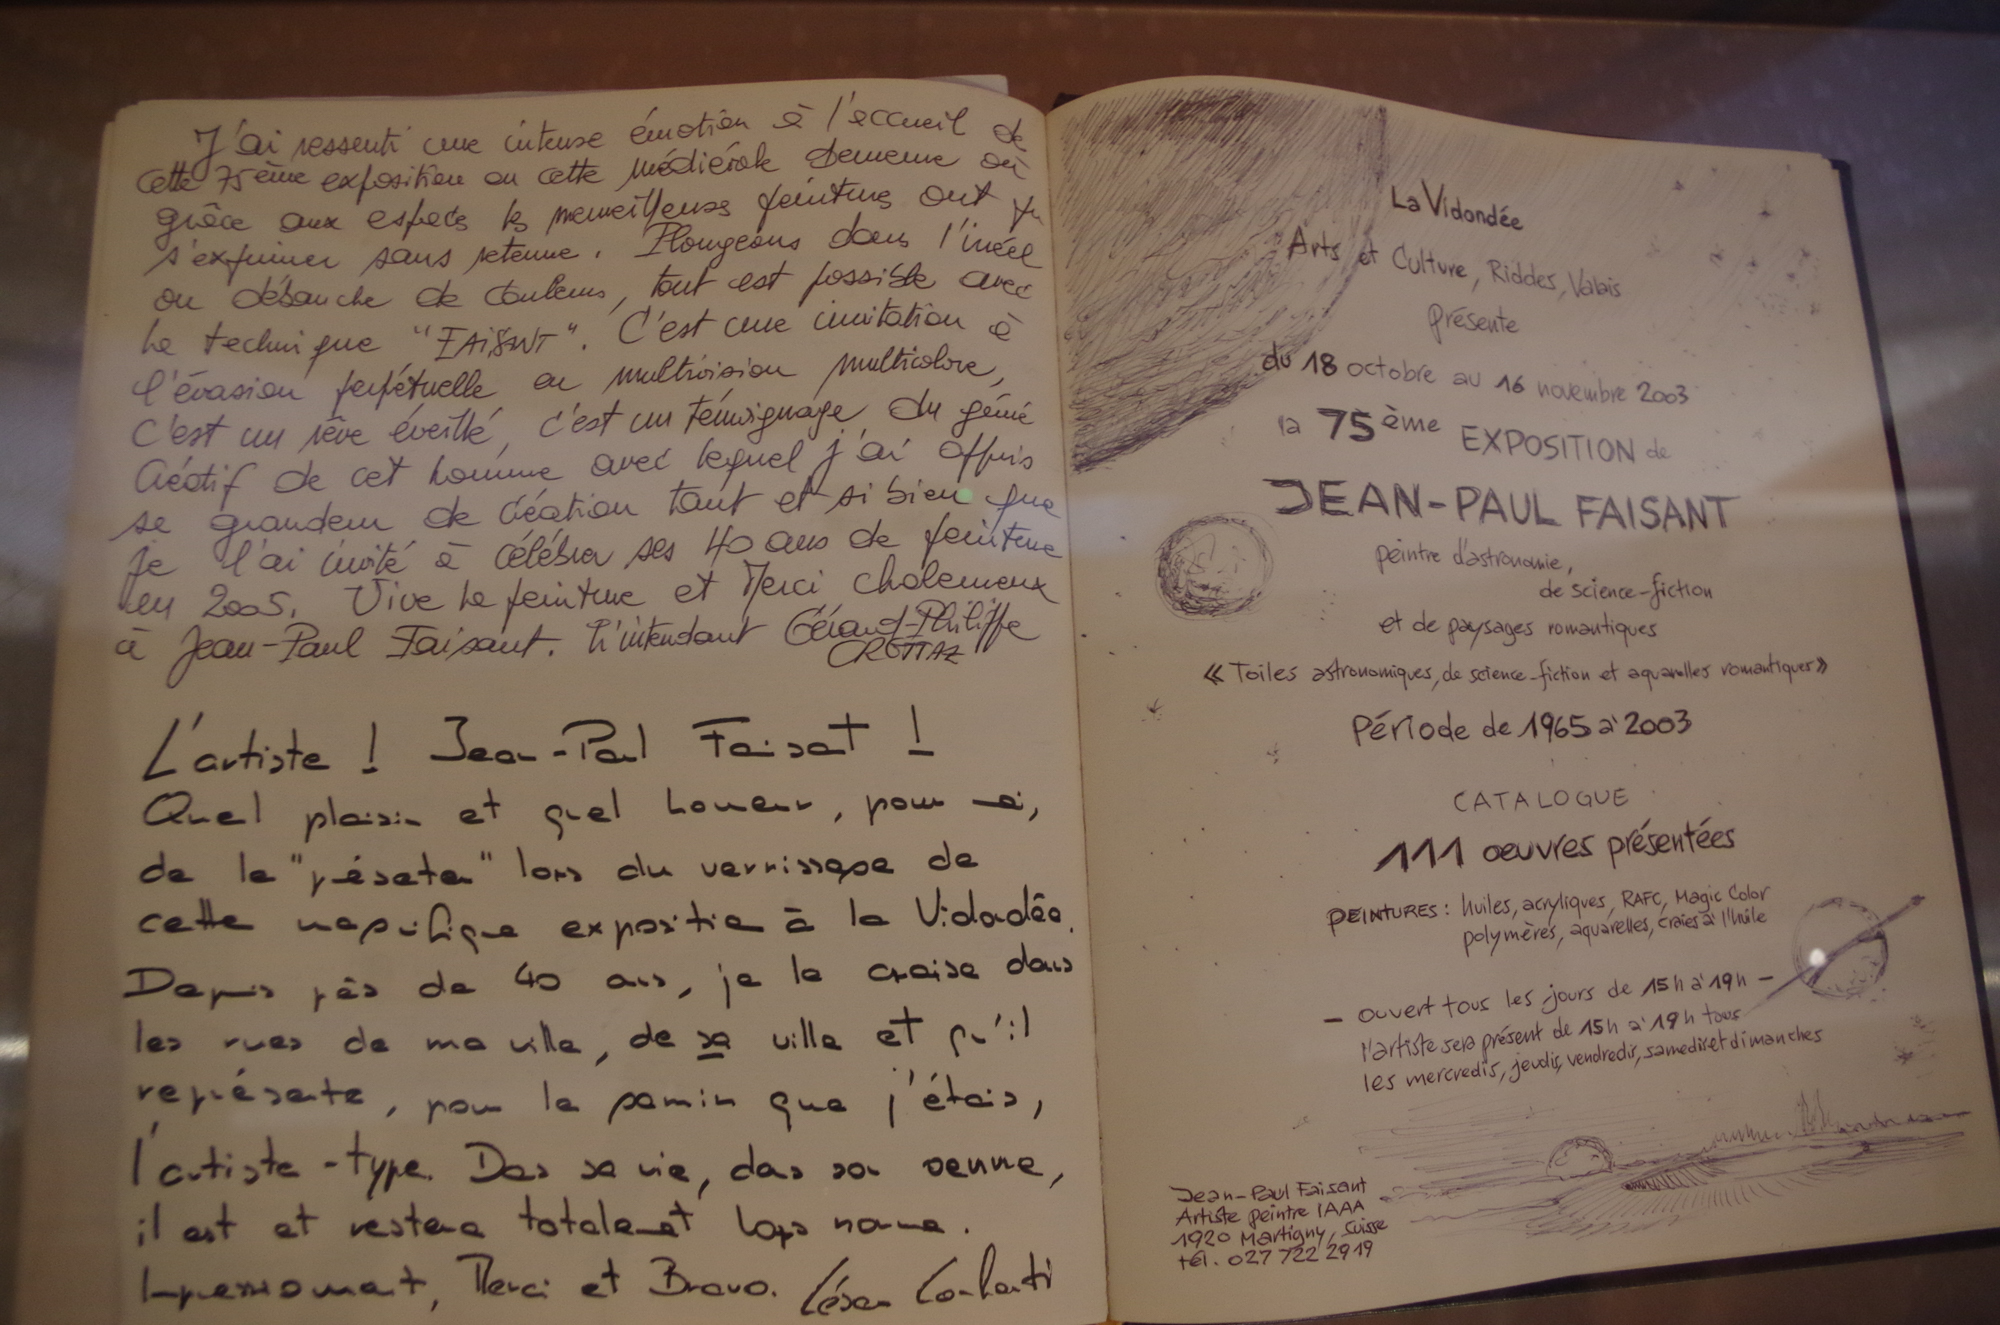 J'ai ressenti une intense émotion à l'accueil de
cette 75ème exposition en cette médiévale demeure où
grâce aux espaces les merveilleuses peintures ont pu
s'exprimer sans retenue. Plongeons dans l'irréel
ou débauche de couleurs, tout est possible avec
la technique "FAISANT". C'est une invitation à
l'évasion perpétuelle en multivision multicolore,
C'est un rêve éveillé, c'est un témoignage du génie
Créatif de cet homme avec lequel j'ai appris
sa grandeur de création tant et si bien que
je l'ai invité à célébrer ses 40 ans de peinture
en 2005. Vive la peinture et Merci chaleureux
à Jean-Paul Faisant. L'intendant Gérard-Philippe
CROTTAZ
L'artiste ! Jean-Paul Faisant !
Quel plaisir et quel honneur, pour moi,
de le "présenter" lors du vernissage de
cette magnifique exposition à la Vidondée.
Depuis près de 40 ans, je le croise dans
les rues de ma ville, de sa ville et qu'il
représente, pour le gamin que j'étais,
l'artiste-type. Dans sa vie, dans son oeuvre,
il est et restera totalement hors norme.
Impressionnant, Merci et Bravo. César
La Vidondée
Arts et Culture, Riddes, Valais
présente
du 18 octobre au 16 novembre 2003
la 75ème EXPOSITION de
JEAN-PAUL FAISANT
peintre d'astronomie,
de science-fiction
et de paysages romantiques
« Toiles astronomiques, de science-fiction et aquarelles romantiques »
Période de 1965 à 2003
CATALOGUE
111 oeuvres présentées
PEINTURES : huiles, acryliques, RAFC, Magic Color
polymères, aquarelles, craies à l'huile
– ouvert tous les jours de 15h à 19h –
l'artiste sera présent de 15h à 19h tous
les mercredis, jeudis, vendredis, samedis et dimanches
Jean-Paul Faisant
Artiste peintre IAAA
1920 Martigny, Suisse
tél. 027 722 29 19